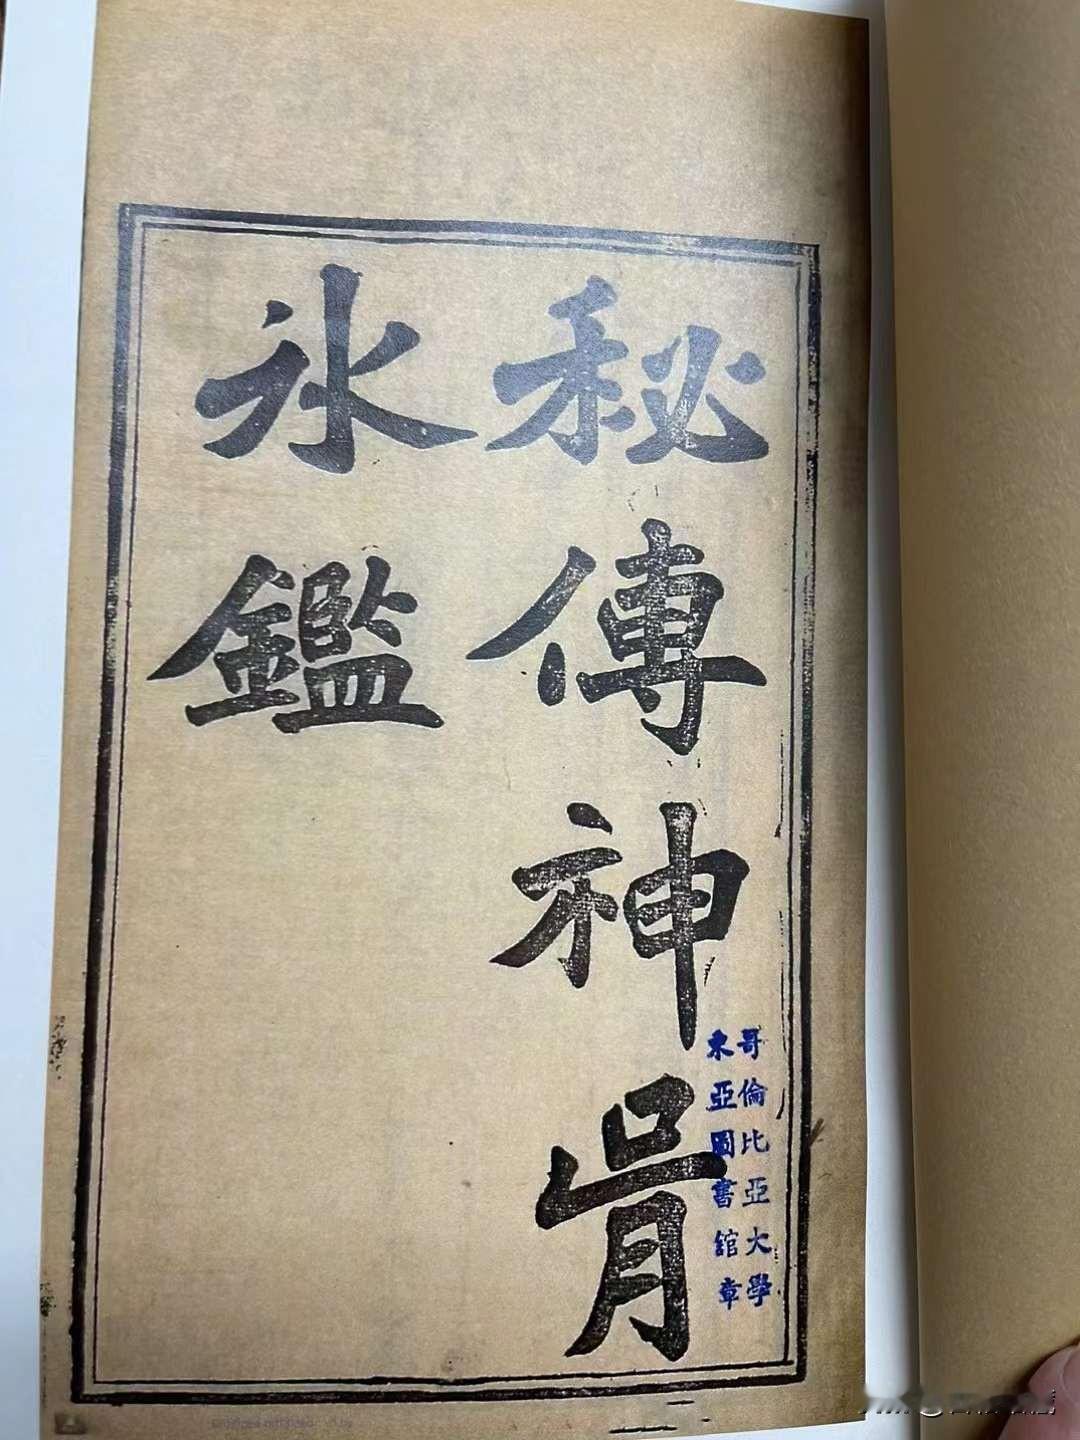 秘傳神骨
冰鑑
哥倫比亞大學
東亞圖書館章